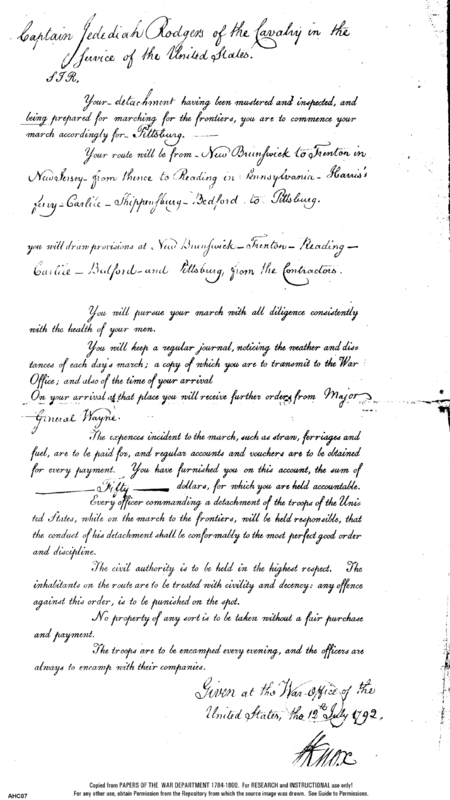 Captain Jedediah Rodgers of the Cavalry in the
Service of the United States.
SIR,
Your detachment having been mustered and inspected, and
being prepared for marching for the frontiers, you are to commence your
march accordingly for Pittsburg.
Your route will be from New Brunswick to Trenton in
New Jersey - from thence to Reading in Pennsylvania - Harris's
ferry - Carlile - Shippensburg - Bedford to Pittsburg.
you will draw provisions at New Brunswick - Trenton - Reading -
Carlile - Bedford - and Pittsburg, from the Contractors.
You will pursue your march with all diligence consistently
with the health of your men.
You will keep a regular journal, noticing the weather and dis
tances of each day's march; a copy of which you are to transmit to the War
Office; and also of the time of your arrival
On your arrival at that place you will receive further orders from Major
General Wayne.
The expences incident to the march, such as straw, ferriages and
fuel, are to be paid for, and regular accounts and vouchers are to be obtained
for every payment. You have furnished you on this account, the sum of
Fifty dollars, for which you are held accountable.
Every officer commanding a detachment of the troops of the Uni
ted States, while on the march to the frontiers, will be held responsible, that
the conduct of his detachment shall be conformably to the most perfect good order
and discipline.
The civil authority is to be held in the highest respect. The
inhabitants on the route are to be treated with civility and decency: any offence
against this order, is to be punished on the spot.
No property of any sort is to be taken without a fair purchase
and payment.
The troops are to be encamped every evening, and the officers are
always to encamp with their companies.
Given at the War Office of the
United States, the 12th July 1792.
HKnox
Copied from PAPERS OF THE WAR DEPARTMENT 1784-1800. For RESEARCH and INSTRUCTIONAL use only!
AHC07 For any other use, obtain Permission from the Repository from which the source image was drawn. See Guide to Permissions.